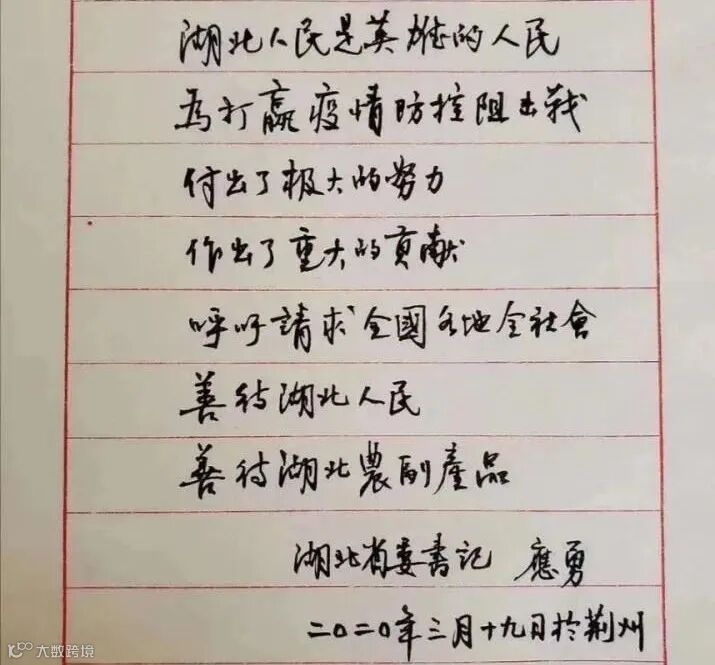 湖北人民是英雄的人民
為打贏疫情防控阻击戰
付出了极大的努力
作出了重大的貢献
呼吁請求全國各地全社會
善待湖北人民
善待湖北農副產品
湖北省委書記 應勇
二〇二〇年三月十九日於荆州
大数跨境